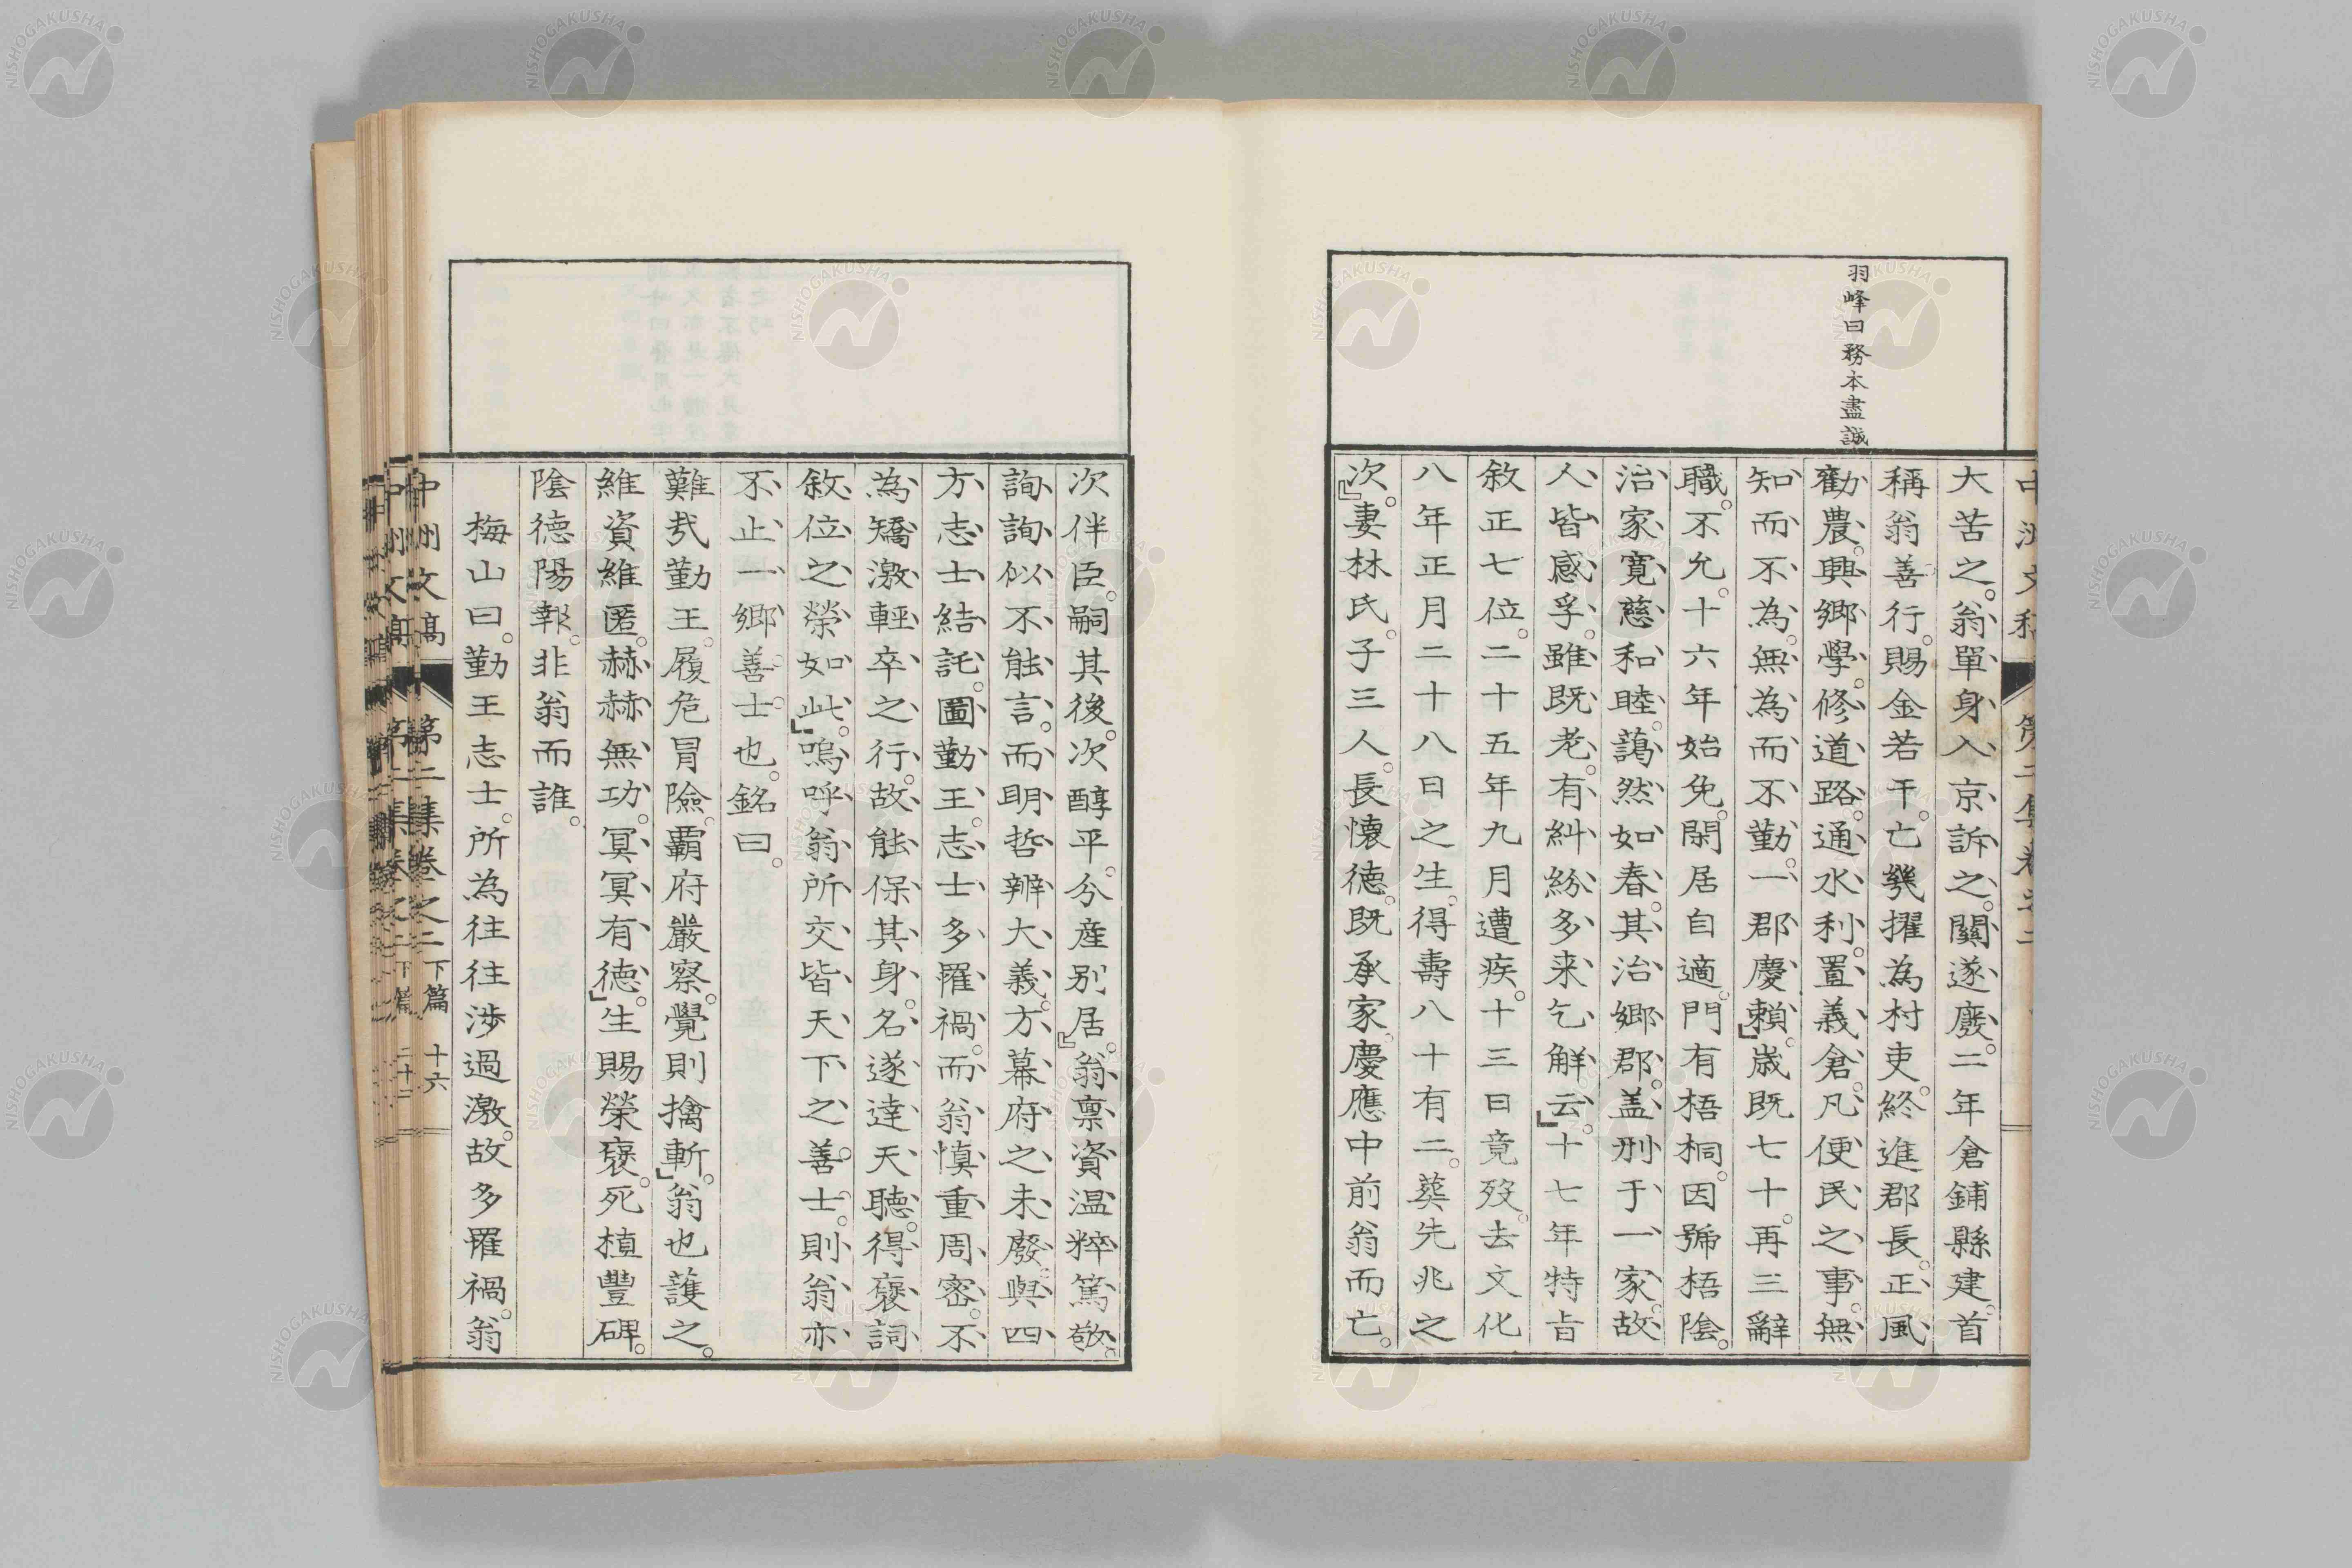 羽峰曰務本盡誠
大苦之。翁單身入京訴之。關遂廢。二年倉鋪縣建。首
稱翁善行。賜金若干。亡幾擢為村吏。終進郡長。正風
勸農。興鄉學。修道路。通水利。置義倉。凡便民之事。無
知而不為。無為而不勤。一郡慶賴。』歲既七十。再三辭
職。不允。十六年始免。閑居自適。門有梧桐。因號梧陰。
治家寬慈和睦。藹然如春。其治鄉郡。蓋刑于一家。故
人皆感孚。雖既老。有糾紛多来乞解云。』十七年特旨
敘正七位。二十五年九月遭疾。十三日竟歿。去文化
八年正月二十八日之生。得壽八十有二。葬先兆之
次。』妻林氏。子三人。長懷德。既承家。慶應中前翁而亡。
次伴臣。嗣其後。次醇平。分産別居。』翁禀資温粹篤敬。
詢詢似不能言。而明哲辨大義。方幕府之未廢。與四
方志士結託。圖勤王。志士多罹禍。而翁慎重周密。不
為矯激輕卒之行。故能保其身。名遂達天聽。得褒詞
敘位之榮如此。』嗚呼翁所交皆天下之善士。則翁亦
不止一鄉善士也。銘曰。
難哉勤王。履危冒險。覇府嚴察。覺則擒斬。』翁也護之。
維資維匿。赫赫無功。冥冥有德。』生賜榮褒。死植豐碑。
陰德陽報。非翁而誰。
梅山曰。勤王志士。所為往往渉過激。故多罹禍。翁
中洲文稿 第二集卷之二 下篇 十六